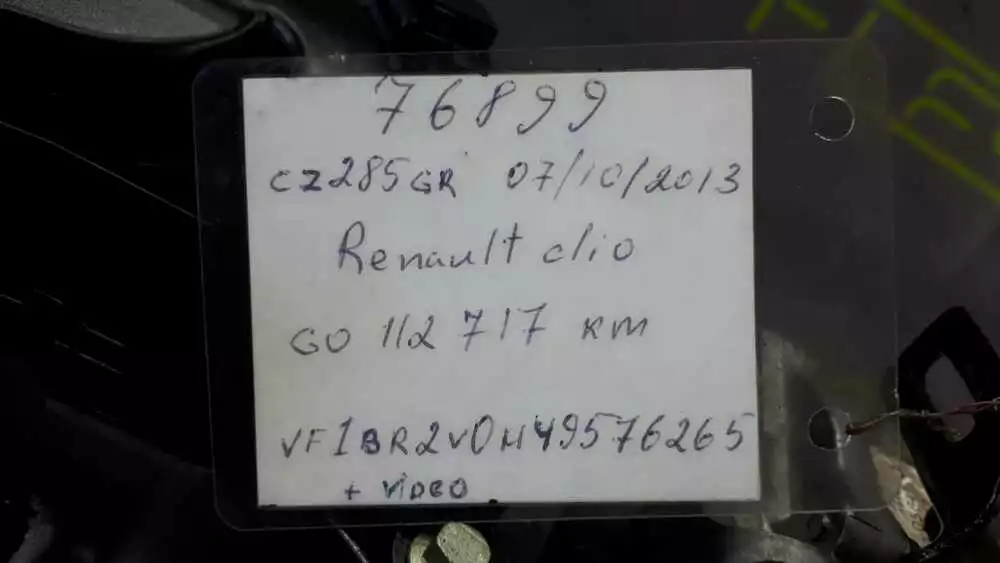 76899
CZ285GR 07/10/2013
Renault clio
GO 112 717 KM
VF1BR2V0H49576265
+ VIDEO